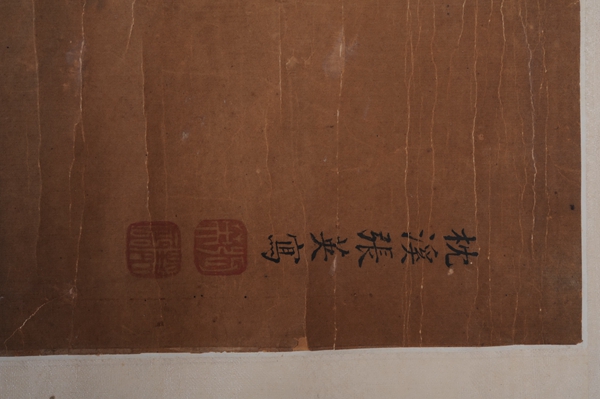 枕溪張英寫